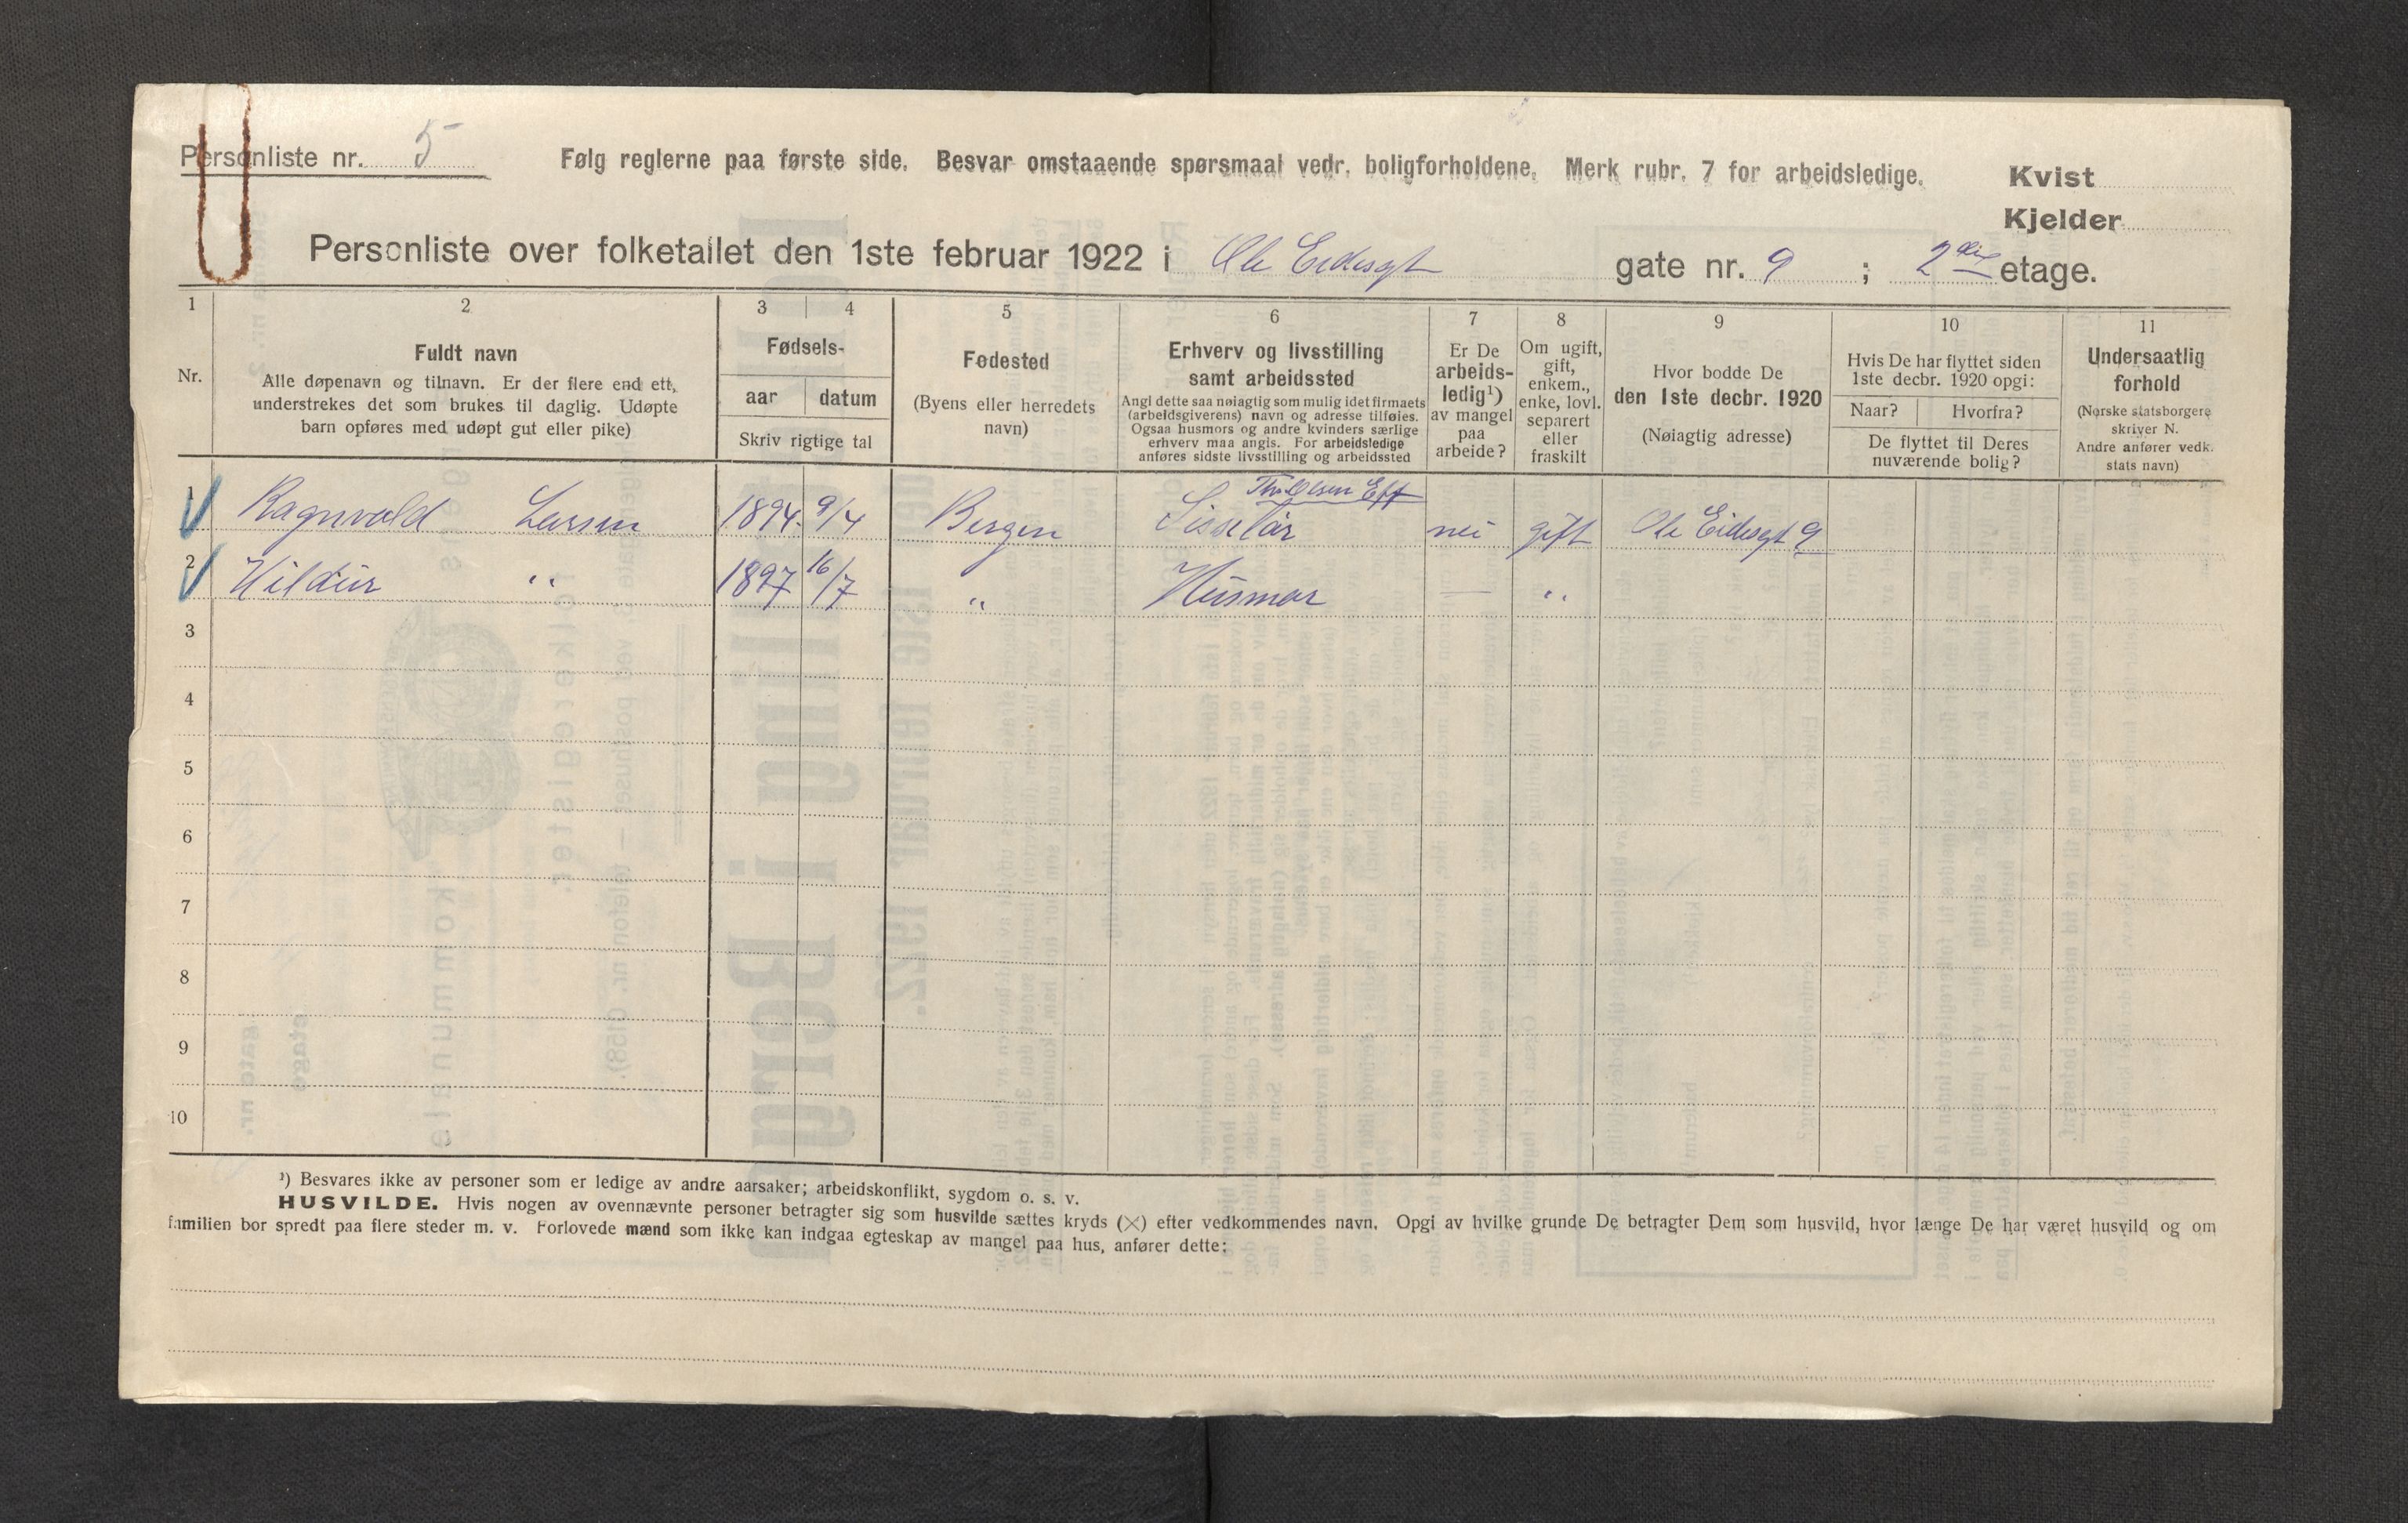 Personliste nr. 5
Følg reglerne paa første side. Besvar omstaaende spørsmaal vedr. boligforholdene. Merk rubr. 7 for arbeidsledige.
Kvist
Kjelder
Personliste over folketallet den 1ste februar 1922 i Ole Eidesgt gate nr. 9 ; 2 etage.
1 2 3 4 5 6 7 8 9 10 11
Nr.
Fuldt navn
Alle døpenavn og tilnavn. Er der flere end ett,
understrekes det som brukes til daglig. Udøpte
barn opføres med udøpt gut eller pike)
Fødsels-
aar datum
Skriv rigtige tal
Fødested
(Byens eller herredets
navn)
Erhverv og livsstilling
samt arbeidssted
Angi dette saa nøiagtig som mulig idet firmaets
(arbeidsgiverens) navn og adresse tilføies.
Ogsaa husmors og andre kvinders særlige
erhverv maa angis. For arbeidsledige
anføres sidste livsstilling og arbeidssted
Er De
arbeids-
ledig¹)
av mangel
paa
arbeide?
Om ugift,
gift,
enkem.,
enke, lovl.
separert
eller
fraskilt
Hvor bodde De
den 1ste decbr. 1920
(Nøiagtig adresse)
Hvis De har flyttet siden
1ste decbr. 1920 opgi:
Naar? Hvorfra?
De flyttet til Deres
nuværende bolig?
Undersaatlig
forhold
(Norske statsborgere
skriver N.
Andre anfører vedk.
stats navn)
1 Ragnvald Larsen 1894 9/4 Bergen nei gift Ole Eidesgt 9
2 Hildur " 1897 16/7 " Husmor — "
3
4
5
6
7
8
9
10
¹) Besvares ikke av personer som er ledige av andre aarsaker; arbeidskonflikt, sygdom o. s. v.
HUSVILDE. Hvis nogen av ovennævnte personer betragter sig som husvilde sættes kryds (×) efter vedkommendes navn. Opgi av hvilke grunde De betragter Dem som husvild, hvor længe De har været husvild og om
familien bor spredt paa flere steder m. v. Forlovede mænd som ikke kan indgaa egteskap av mangel paa hus, anfører dette: